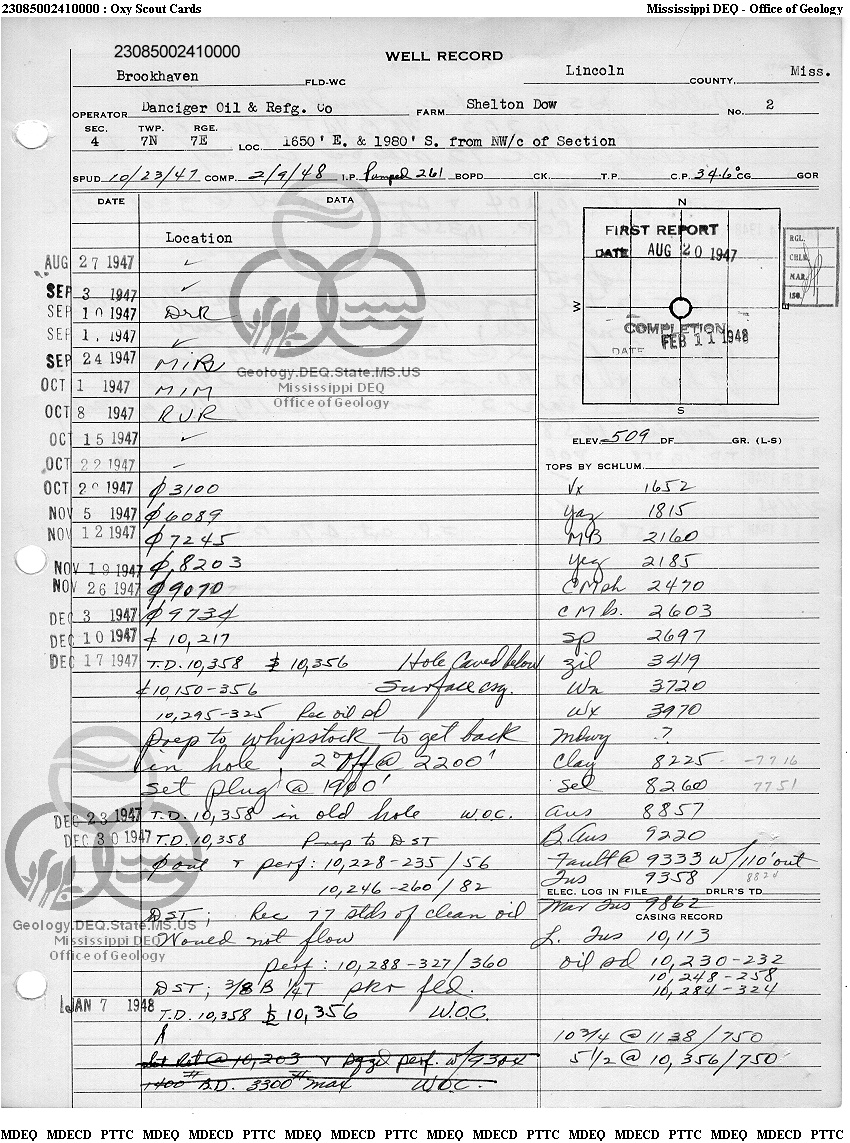 23085002410000 : Oxy Scout Cards
Mississippi DEQ - Office of Geology
23085002410000
WELL RECORD
Brookhaven FLD-WC Lincoln COUNTY, Miss.
OPERATOR Danciger Oil & Refg. Co FARM Shelton Dow No. 2
SEC. TWP. RGE.
4 7N 7E LOC. 1650' E. & 1980' S. from NW/c of Section
SPUD 10/23/47 COMP. 2/9/48 I.P. Pumped 261 BOPD CK. T.P. C.P. 34.6° CG GOR
DATE DATA
Location
AUG 27 1947 ✓
SEP 3 1947 ✓
SEP 10 1947 DrR
SEP 1, 1947 ✓
SEP 24 1947 MiRu
OCT 1 1947 MIM
OCT 8 1947 RUR
OCT 15 1947 ✓
OCT 22 1947 ✓
OCT 2 1947 ⌀ 3100
NOV 5 1947 ⌀ 6089
NOV 12 1947 ⌀ 7245
NOV 19 1947 ⌀ 8203
NOV 26 1947 ⌀ 9070
DEC 3 1947 ⌀ 9734
DEC 10 1947 ¢ 10,217
DEC 17 1947 T.D. 10,358 $ 10,356 Hole Caved below
¢ 10,150-356 Surface csg.
10,295-325 Rec oil sd
prep to whipstock to get back
in hole, @ 2200'
set plug @ 1900'
DEC 23 1947 T.D. 10,358 in old hole W.O.C.
DEC 30 1947 T.D. 10,358 Prep to DST
⌀ out + perf: 10,228-235/56
10,246-260/82
DST; Rec 77 stds of clean oil
Would not flow
perf: 10,288-327/360
DST; 3/8 B 1/4 T pkr fld.
JAN 7 1948 T.D. 10,358 $ 10,356 W.O.C.
Set Ret @ 10,203 + sqzd perf. w/
1400# B.D. 3300# max W.O.C.
N
FIRST REPORT
DATE AUG 20 1947
W
E
COMPLETION
DATE FEB 11 1948
S
RGL.
CHLK.
MAR.
ISO.
ELEV. 509 DF GR. (L-S)
TOPS BY SCHLUM.
Vx 1652
Yaz 1815
MB 2160
Yeg 2185
CMsh 2470
CMls. 2603
Sp 2697
Zil 3419
Wn 3720
Wx 3970
Mdwy ?
Clay 8225 -7716
Sel 8260 7751
Aus 8857
B. Aus 9220
Fault @ 9333 w/110' out
Tus 9358
ELEC. LOG IN FILE DRLR'S TD
Mar Tus 9862
CASING RECORD
L. Tus 10,113
oil sd 10,230-232
10,248-258
10,284-324
10 3/4 @ 1138/750
5 1/2 @ 10,356/750
Geology.DEQ.State.MS.US
Mississippi DEQ
Office of Geology
Geology.DEQ.State.MS.US
Mississippi DEQ
Office of Geology
MDEQ MDECD PTTC MDEQ MDECD PTTC MDEQ MDECD PTTC MDEQ MDECD PTTC MDEQ MDECD PTTC MDEQ MDECD PTTC